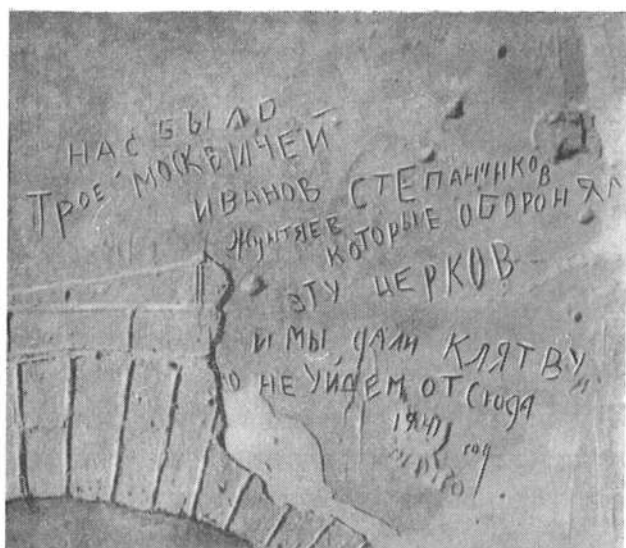 НАС БЫЛО
ТРОЕ МОСКВИЧЕЙ
ИВАНОВ СТЕПАНЧИКОВ
ЖУНТЯЕВ КОТОРЫЕ ОБОРОНЯЛ
ЭТУ ЦЕРКОВ
И МЫ ДАЛИ КЛЯТВУ
НЕ УЙДЕМ ОТ СЮДА
1941
год